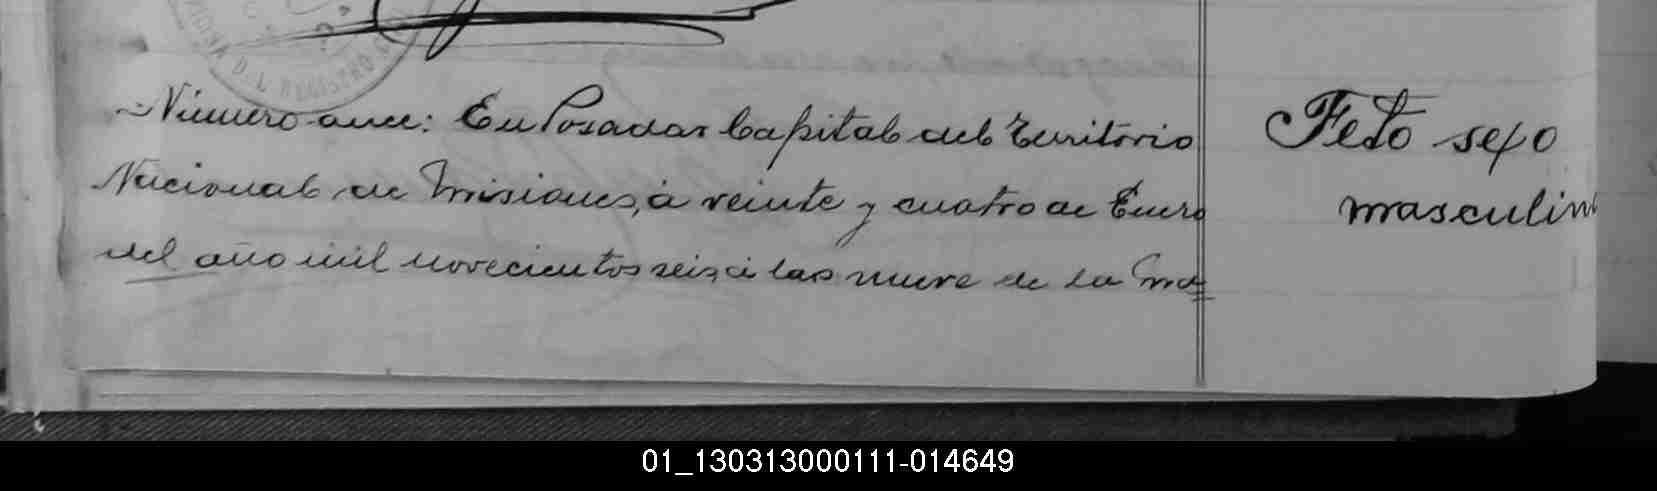 Número once: En Posadas Capital del Territorio
Nacional de Misiones, á veinte y cuatro de Enero
del año mil novecientos seis, á las nueve de la ma=
Feto sexo
masculino
REGISTRO
01_130313000111-014649